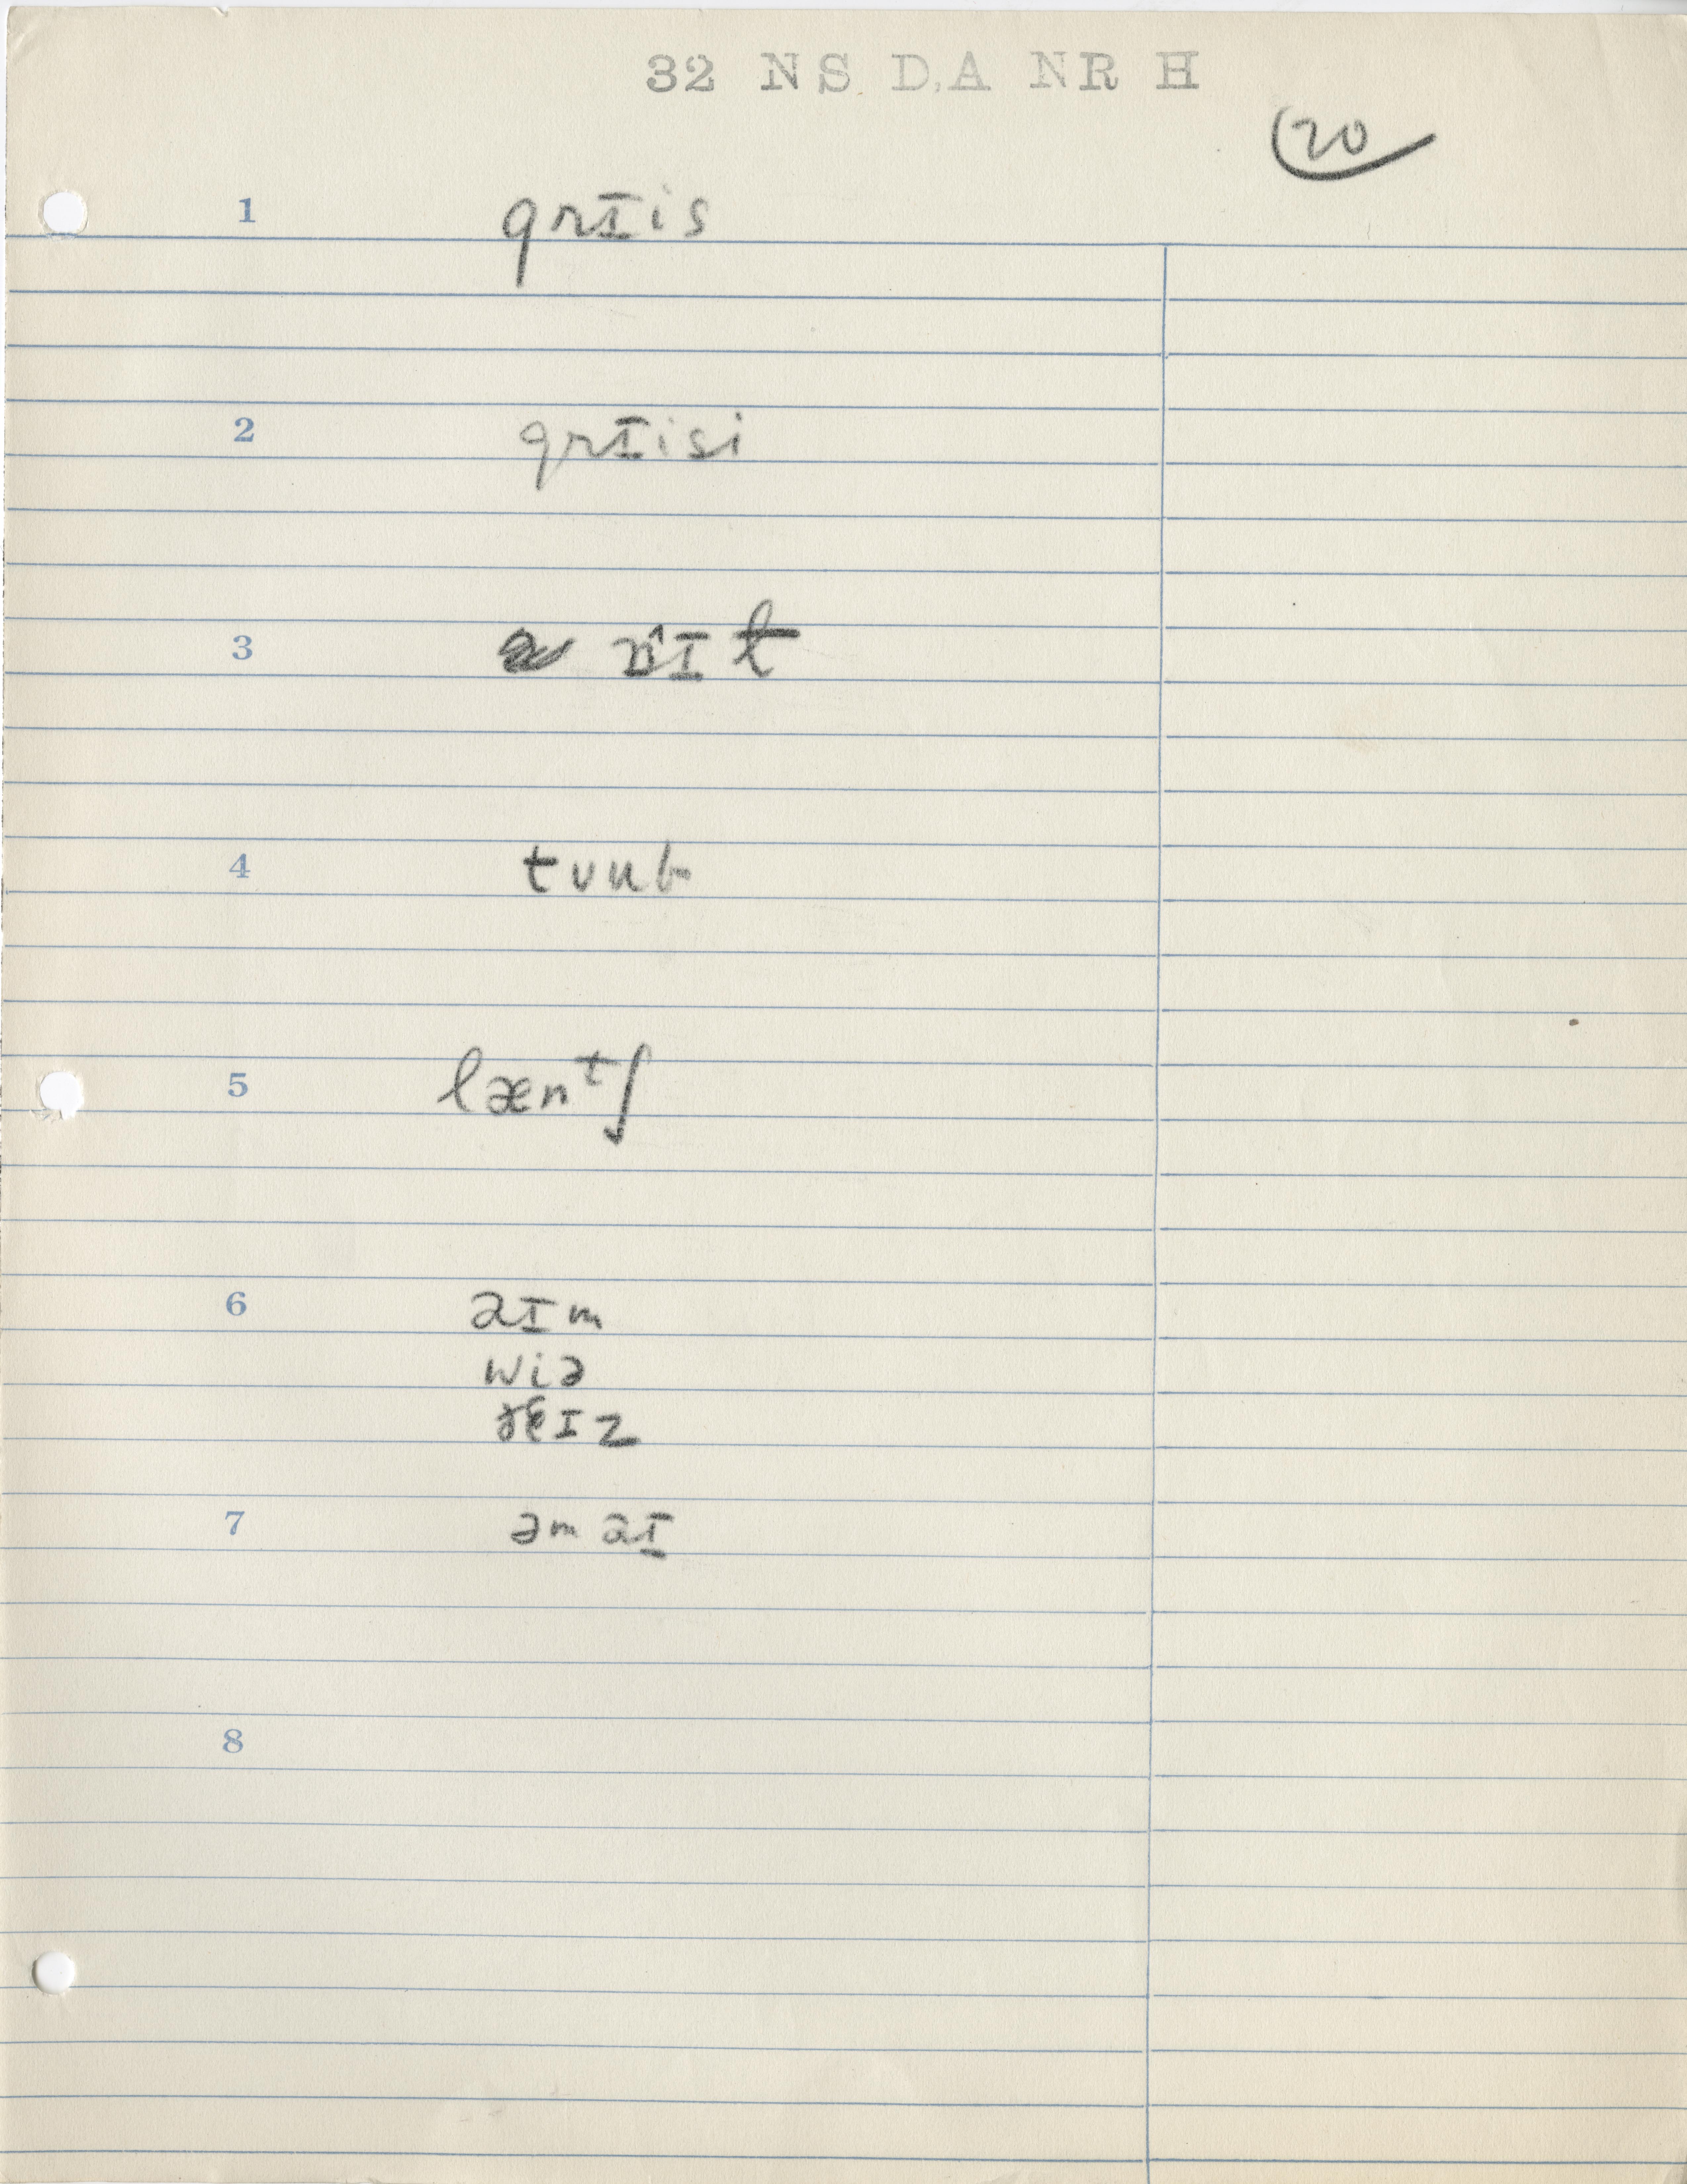 32 NS. D.A NR H
20
1 grɪis
2 grɪisi
3 ɪt
4 tuub
5 læntʃ
6 aɪm
wiə
ðɛɪz
7 əm aɪ
8